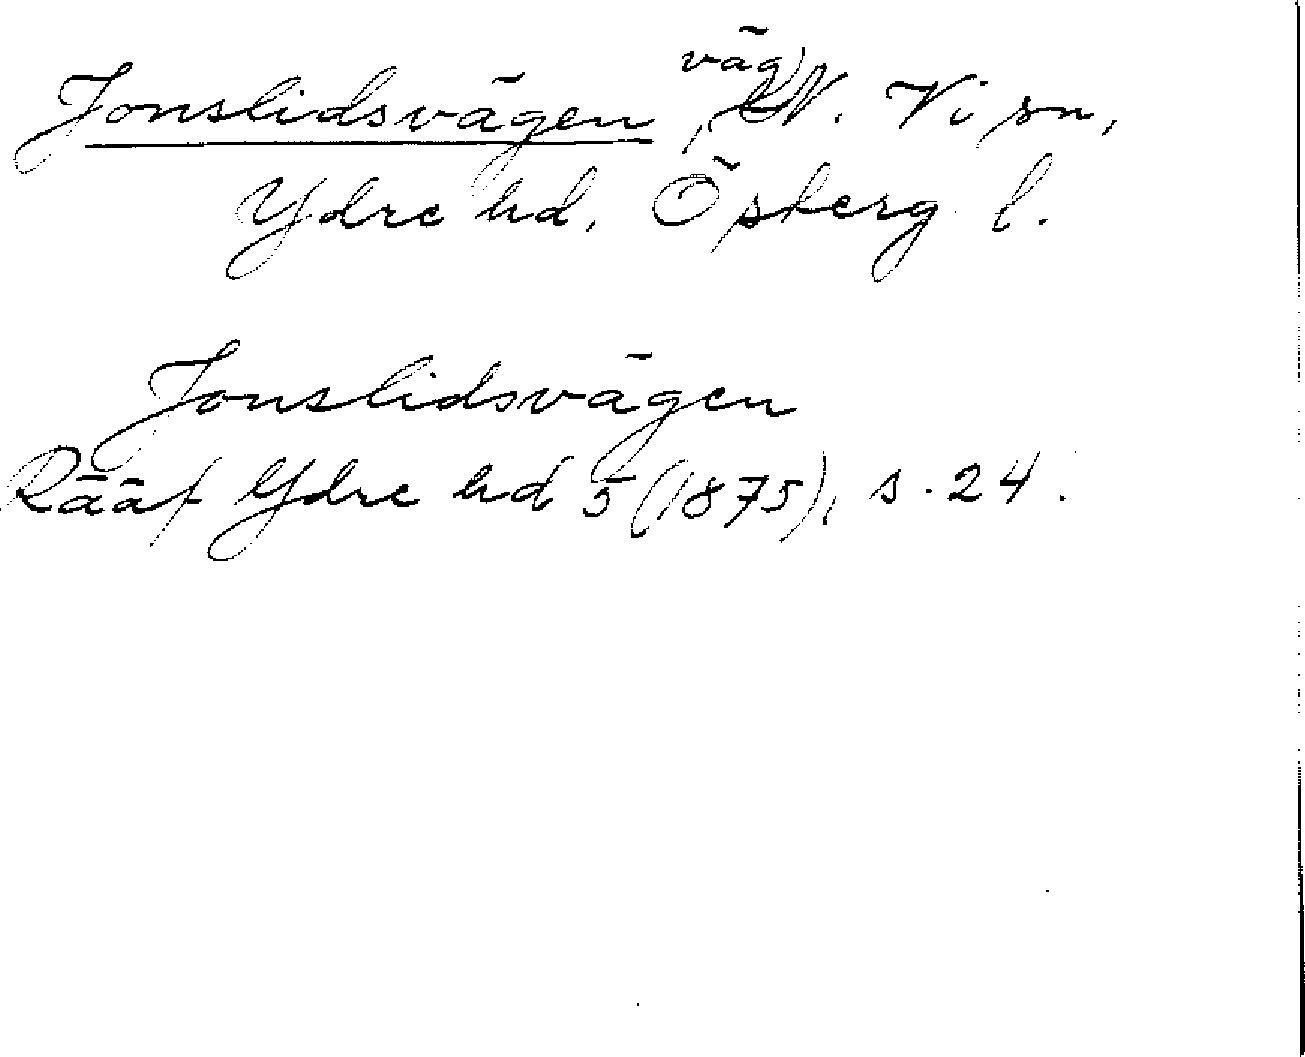 Jonslidsvägen, väg, N. Vi sn,
Ydre hd, Östergl.
Jonslidsvägen
Rääf Ydre hd 5 (1875), s. 24.